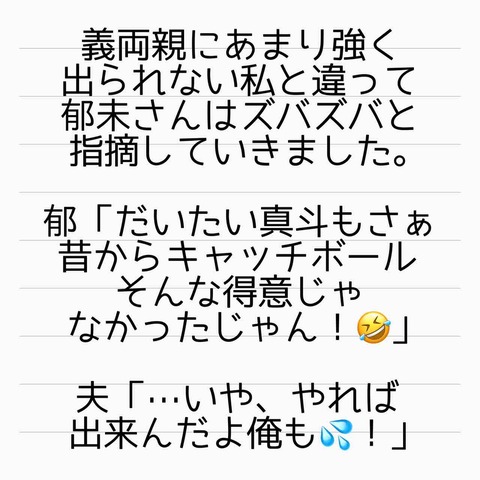 義両親にあまり強く
出られない私と違って
郁未さんはズバズバと
指摘していきました。
郁「だいたい真斗もさぁ
昔からキャッチボール
そんな得意じゃ
なかったじゃん！🤣」
夫「…いや、やれば
出来んだよ俺も💦！」